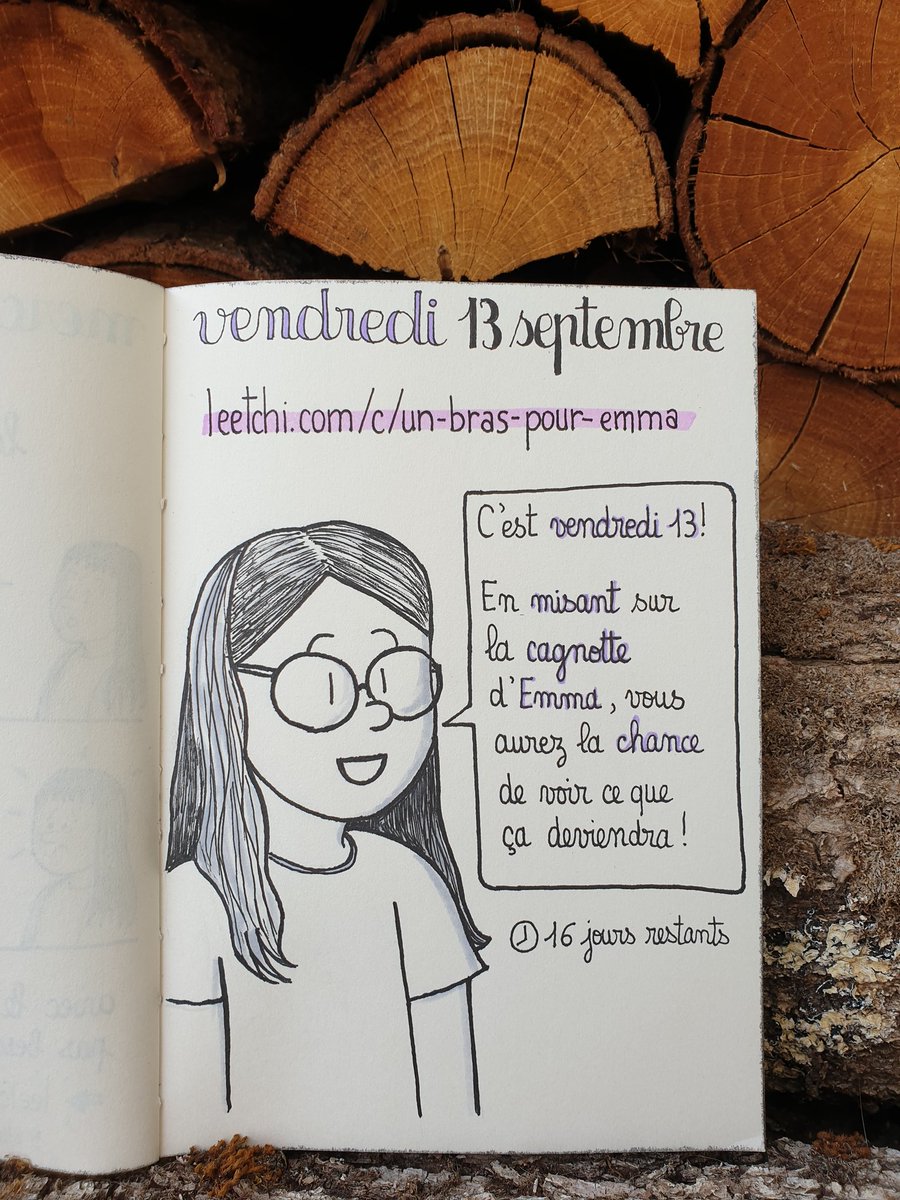 vendredi 13 septembre
leetchi.com/c/un-bras-pour-emma
C'est vendredi 13!
En misant sur
la cagnotte
d'Emma, vous
aurez la chance
de voir ce que
ça deviendra!
16 jours restants